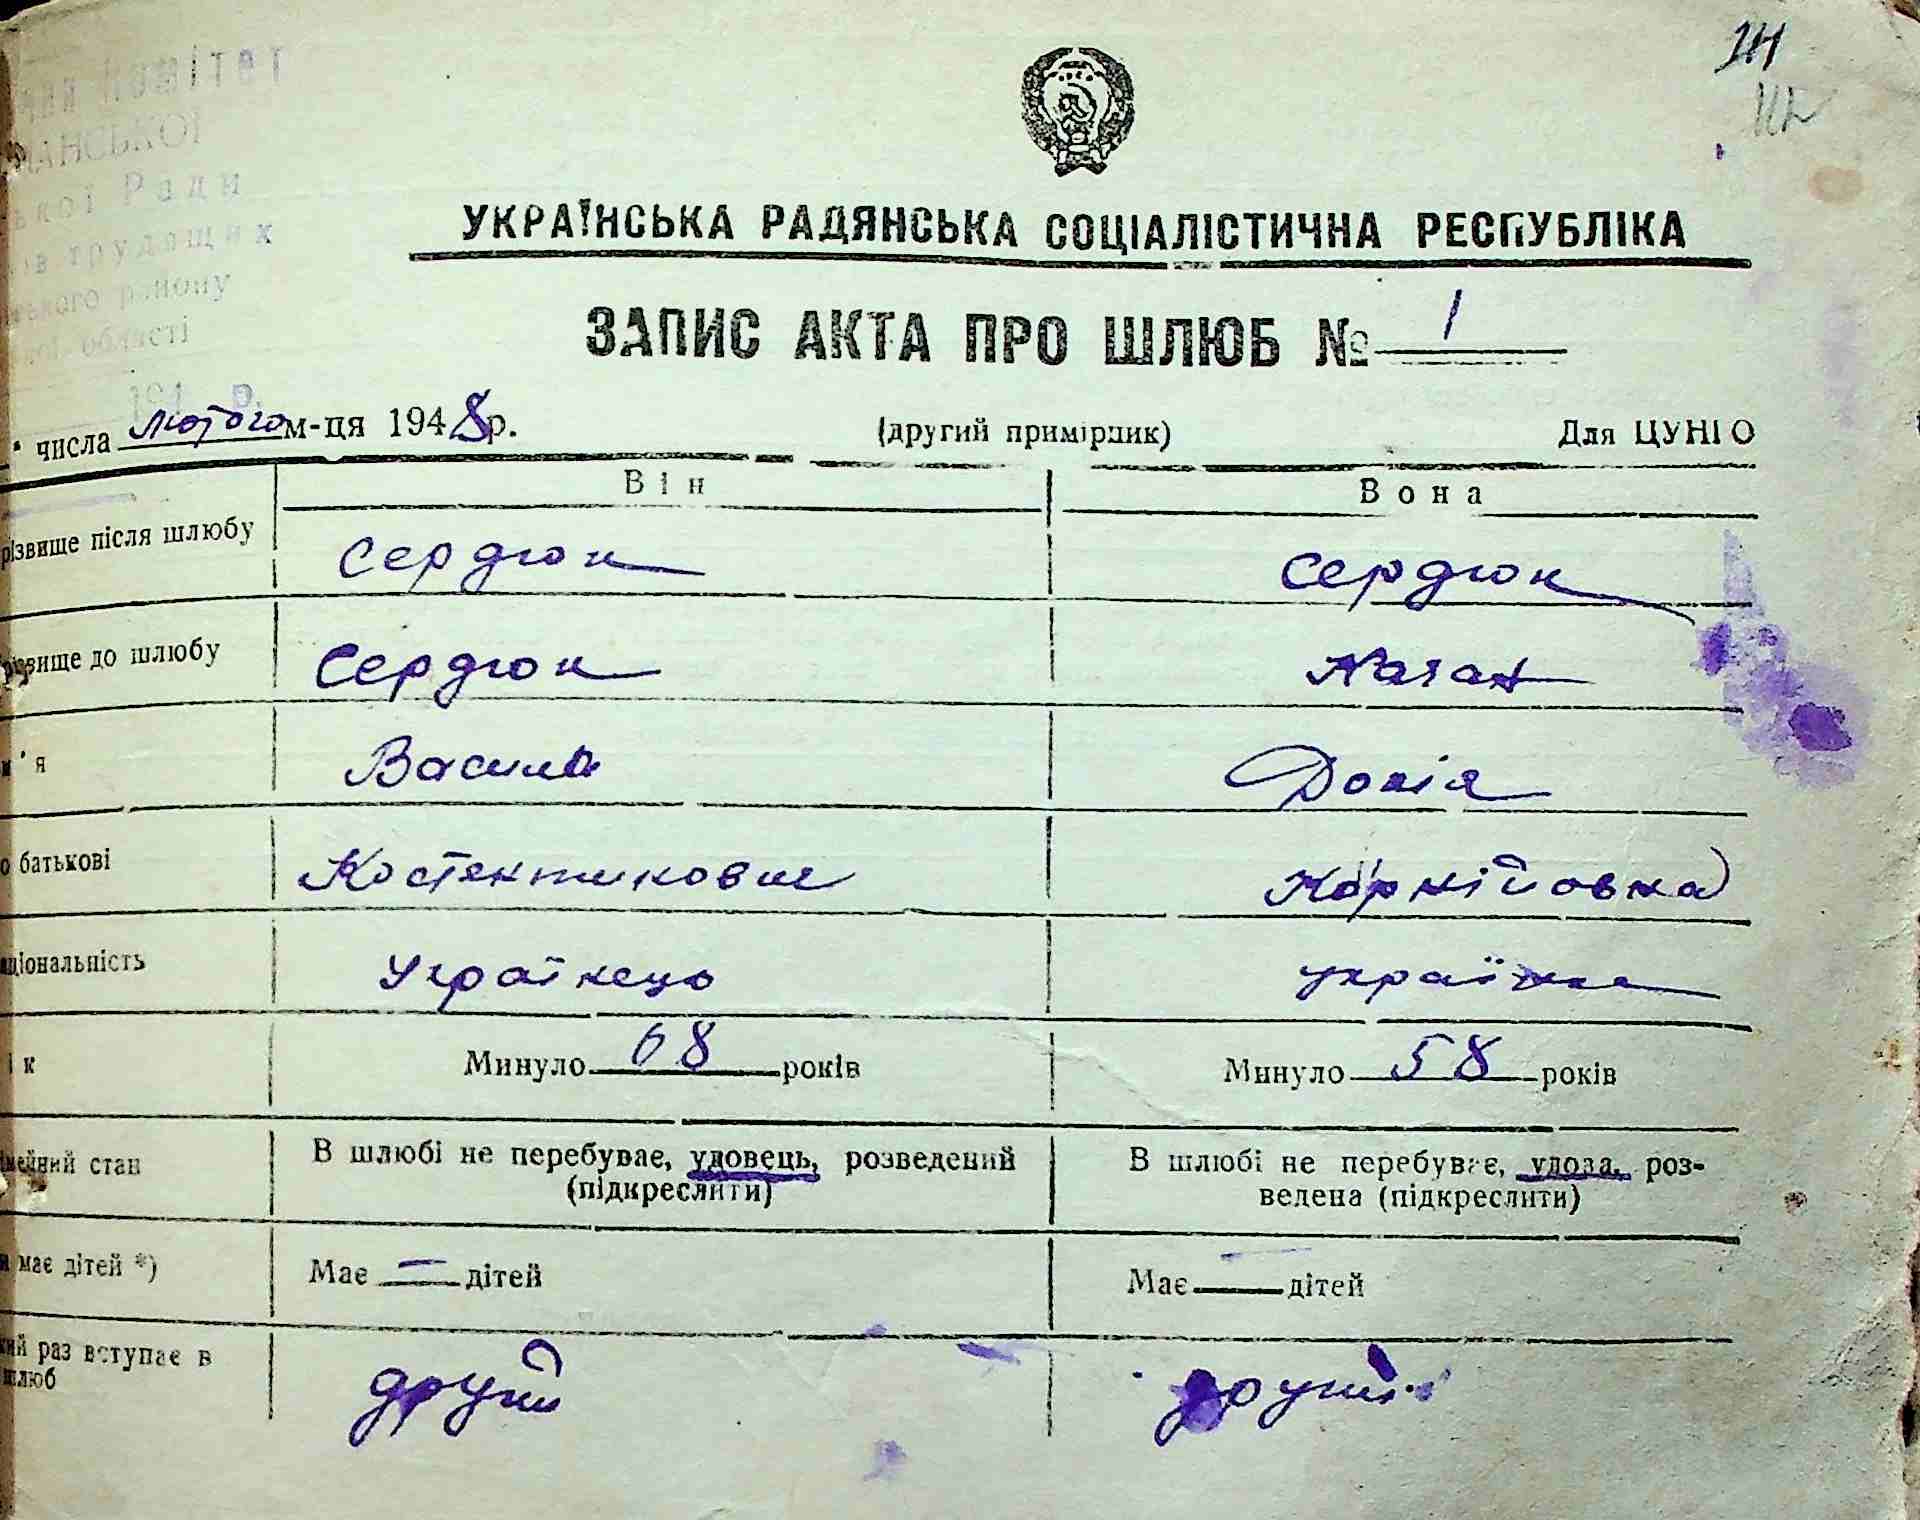 24
комітет
АНСЬКОЇ
Ради
трудящих
ського району
області
194 р.
УКРАЇНСЬКА РАДЯНСЬКА СОЦІАЛІСТИЧНА РЕСПУБЛІКА
ЗАПИС АКТА ПРО ШЛЮБ № 1
" числа лютого м-ця 1948 р. (другий примірник) Для ЦУНГО
Він Вона
різвище після шлюбу Сердюк Сердюк
різвище до шлюбу Сердюк
м'я Василь Докія
о батькові Костянтинович Корнійовна
аціональність Українець українка
ік Минуло 68 років Минуло 58 років
імейний стан В шлюбі не перебуває, удовець, розведений В шлюбі не перебуває, удова, роз-
(підкреслити) ведена (підкреслити)
и має дітей *) Має — дітей Має — дітей
кий раз вступає в другий другий
шлюб